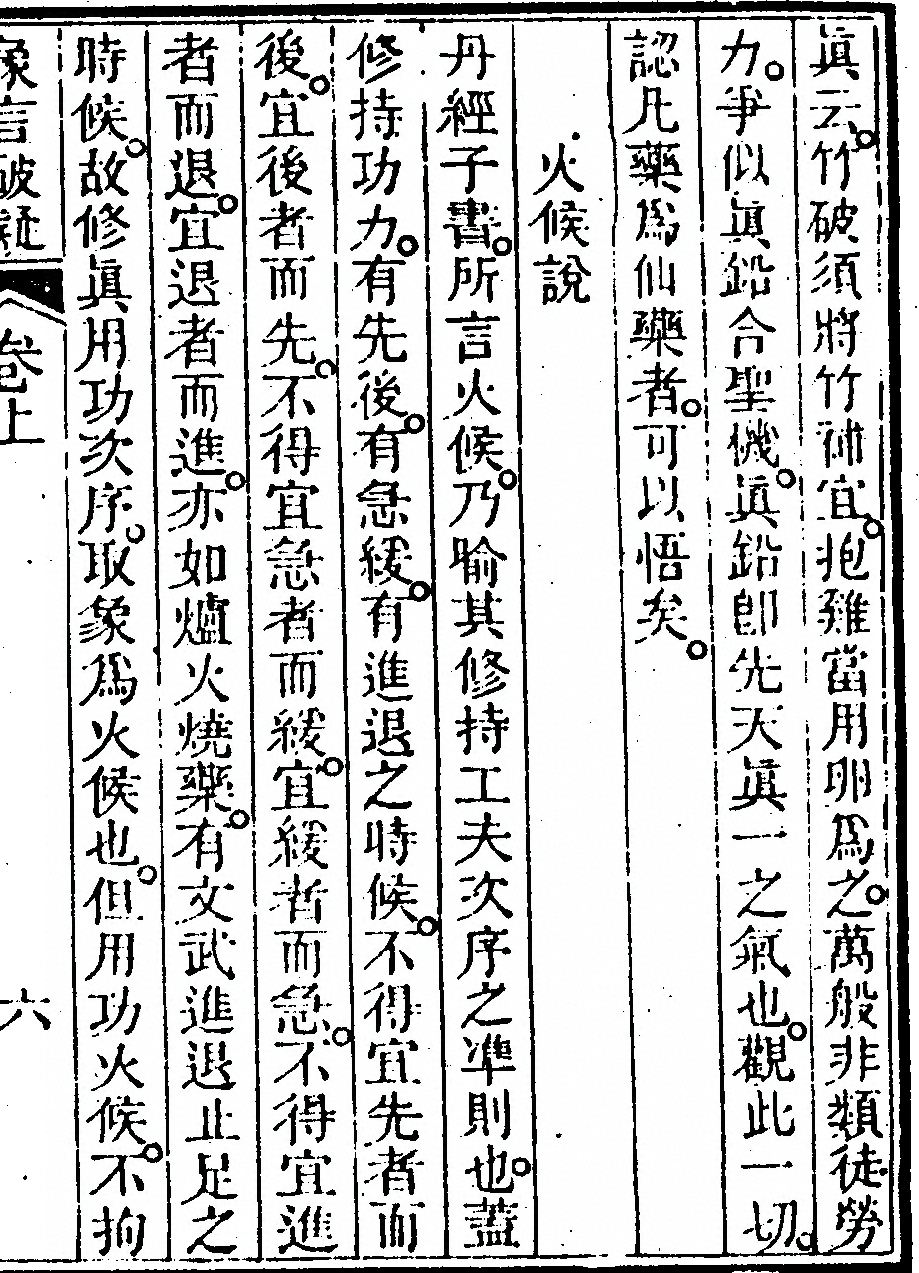 眞云。竹破須將竹補宜。抱雞當用卵爲之。萬般非類徒勞
力。爭似眞鉛合聖機。眞鉛卽先天眞一之氣也。觀此一切。
認凡藥爲仙藥者。可以悟矣。
火候說
丹經子書。所言火候。乃喻其修持工夫次序之準則也。蓋
修持功力。有先後。有急緩。有進退之時候。不得宜先者而
後。宜後者而先。不得宜急者而緩。宜緩者而急。不得宜進
者而退。宜退者而進。亦如爐火燒藥。有文武進退止足之
時候。故修眞用功次序。取象爲火候也。但用功火候。不拘
象言破疑
卷上
六